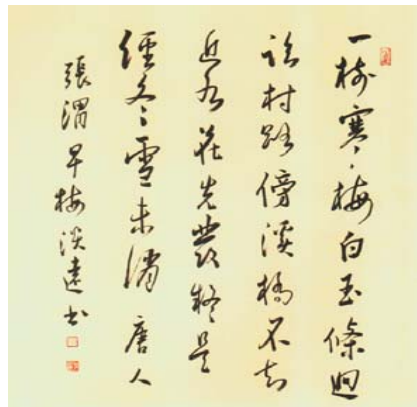 一樹寒梅白玉條迥
臨村路傍溪橋不知
近水花先發疑是
經冬雪未消唐人
張渭早梅淡遠書